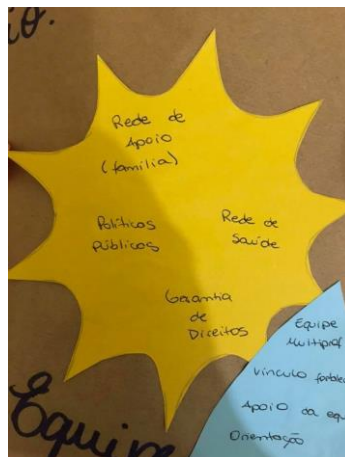 Rede de
Apoio
(família)
Políticas
Públicas
Rede de
Saúde
Garantia
de
Direitos
Equipe
Multiprof
vínculo fortale
Apoio da equ
Orientação
Equipe